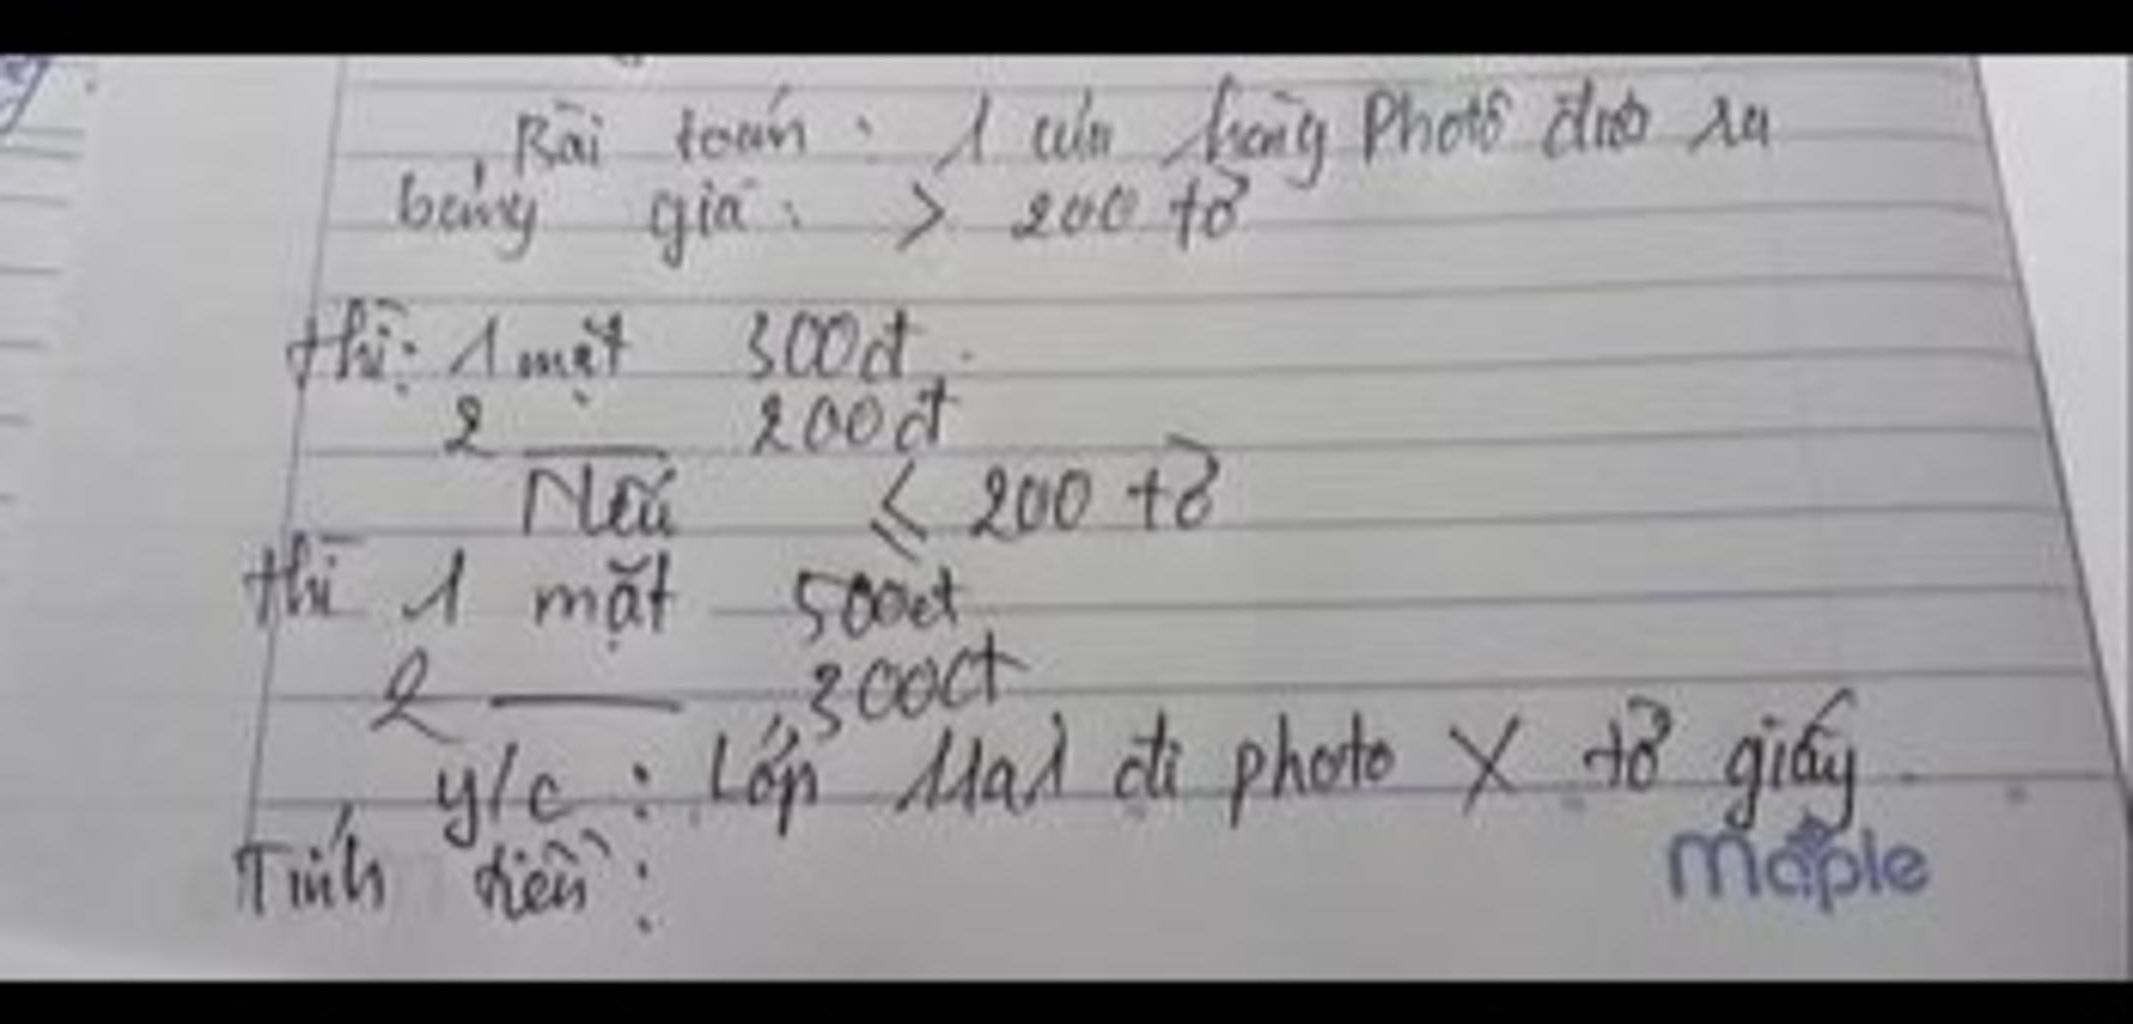 Bài toán : 1 cửa hàng Photo đưa ra
bảng giá : > 200 tờ
thì : 1 mặt 300đ.
2 — 200đ
Nếu ≤ 200 tờ
thì 1 mặt 500đ
2 — 300đ
y/c : Lớp 11a1 đi photo X tờ giấy.
Tính tiền :
maple